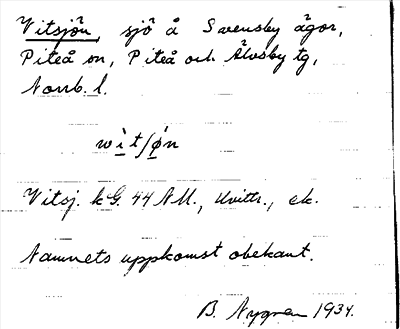 Vitsjön, sjö å Svensby ägor,
Piteå sn, Piteå och Älvsby tg,
Norrb. l.
wìtſø̀n
Vitsj. kG. 44 NU., Kvittr., ek.
Namnets uppkomst obekant.
B. Nygren 1934.